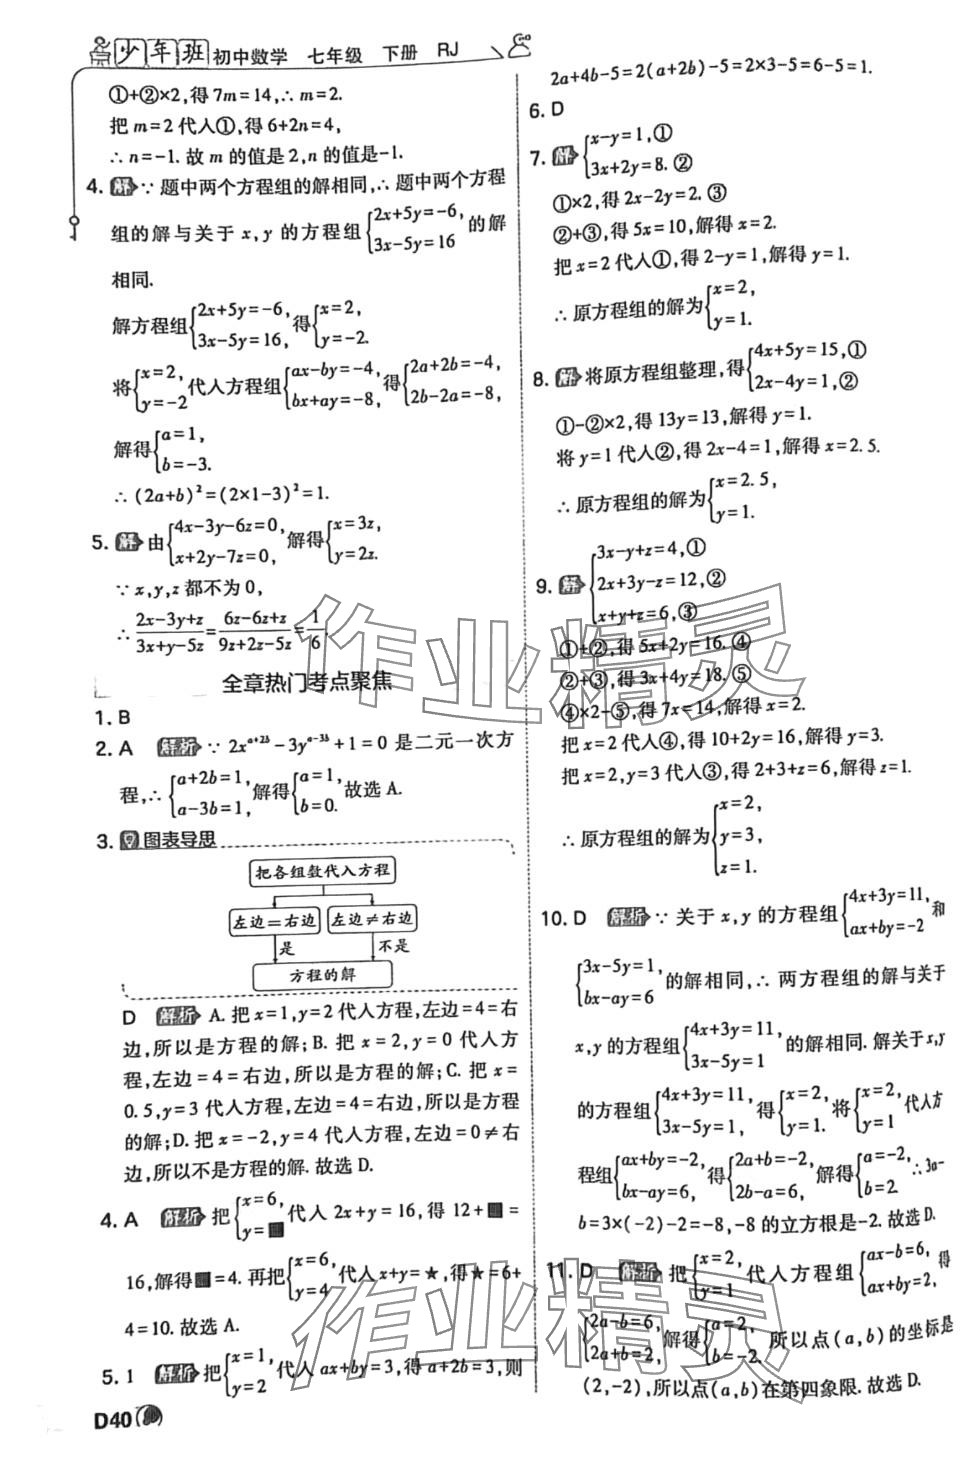 少年班 初中数学 七年级 下册 RJ
①+②×2,得7m=14,∴m=2.
把m=2代人①,得6+2n=4,
∴n=-1.故m的值是2,n的值是-1.
4. 解 ∵题中两个方程组的解相同,∴题中两个方程
组的解与关于x,y的方程组{2x+5y=-6, 3x-5y=16 的解
相同.
解方程组{2x+5y=-6, 3x-5y=16, 得{x=2, y=-2.
将{x=2, y=-2 代人方程组{ax-by=-4, bx+ay=-8, 得{2a+2b=-4, 2b-2a=-8,
解得{a=1, b=-3.
∴(2a+b)²=(2×1-3)²=1.
5. 解 由{4x-3y-6z=0, x+2y-7z=0, 解得{x=3z, y=2z.
∵x,y,z都不为0,
∴(2x-3y+z)/(3x+y-5z)=(6z-6z+z)/(9z+2z-5z)=1/6.
全章热门考点聚焦
1. B
2. A 解析 ∵2x^{a+2b}-3y^{a-3b}+1=0是二元一次方
程,∴{a+2b=1, a-3b=1, 解得{a=1, b=0. 故选A.
3. 图表导思
把各组数代入方程
左边=右边 左边≠右边
是 不是
方程的解
D 解析 A.把x=1,y=2代人方程,左边=4=右
边,所以是方程的解;B.把x=2,y=0代人方
程,左边=4=右边,所以是方程的解;C.把x=
0.5,y=3代人方程,左边=4=右边,所以是方程
的解;D.把x=-2,y=4代人方程,左边=0≠右
边,所以不是方程的解.故选D.
4. A 解析 把{x=6, y=■ 代人2x+y=16,得12+■=
16,解得■=4.再把{x=6, y=4 代人x+y=★,得★=6+
4=10.故选A.
5. 1 解析 把{x=1, y=2 代人ax+by=3,得a+2b=3,则
D40
2a+4b-5=2(a+2b)-5=2×3-5=6-5=1.
6. D
7. 解 {x-y=1,① 3x+2y=8.②
①×2,得2x-2y=2.③
②+③,得5x=10,解得x=2.
把x=2代人①,得2-y=1,解得y=1.
∴原方程组的解为{x=2, y=1.
8. 解 将原方程组整理,得{4x+5y=15,① 2x-4y=1,②
①-②×2,得13y=13,解得y=1.
将y=1代人②,得2x-4=1,解得x=2.5.
∴原方程组的解为{x=2.5, y=1.
9. 解 {3x-y+z=4,① 2x+3y-z=12,② x+y+z=6,③
①+②,得5x+2y=16.④
②+③,得3x+4y=18.⑤
④×2-⑤,得7x=14,解得x=2.
把x=2代人④,得10+2y=16,解得y=3.
把x=2,y=3代人③,得2+3+z=6,解得z=1.
∴原方程组的解为{x=2, y=3, z=1.
10. D 解析 ∵关于x,y的方程组{4x+3y=11, ax+by=-2 和
{3x-5y=1, bx-ay=6 的解相同,∴两方程组的解与关于
x,y的方程组{4x+3y=11, 3x-5y=1 的解相同.解关于x,y
的方程组{4x+3y=11, 3x-5y=1, 得{x=2, y=1, 将{x=2, y=1 代人方
程组{ax+by=-2, bx-ay=6, 得{2a+b=-2, 2b-a=6, 解得{a=-2, b=2. ∴3a-
b=3×(-2)-2=-8,-8的立方根是-2.故选D.
11. D 解析 把{x=2, y=1 代人方程组{ax-b=6, ax+by=2, 得
{2a-b=6, 2a+b=2, 解得{a=2, b=-2. 所以点(a,b)的坐标是
(2,-2),所以点(a,b)在第四象限.故选D.
作业精灵
作业精灵